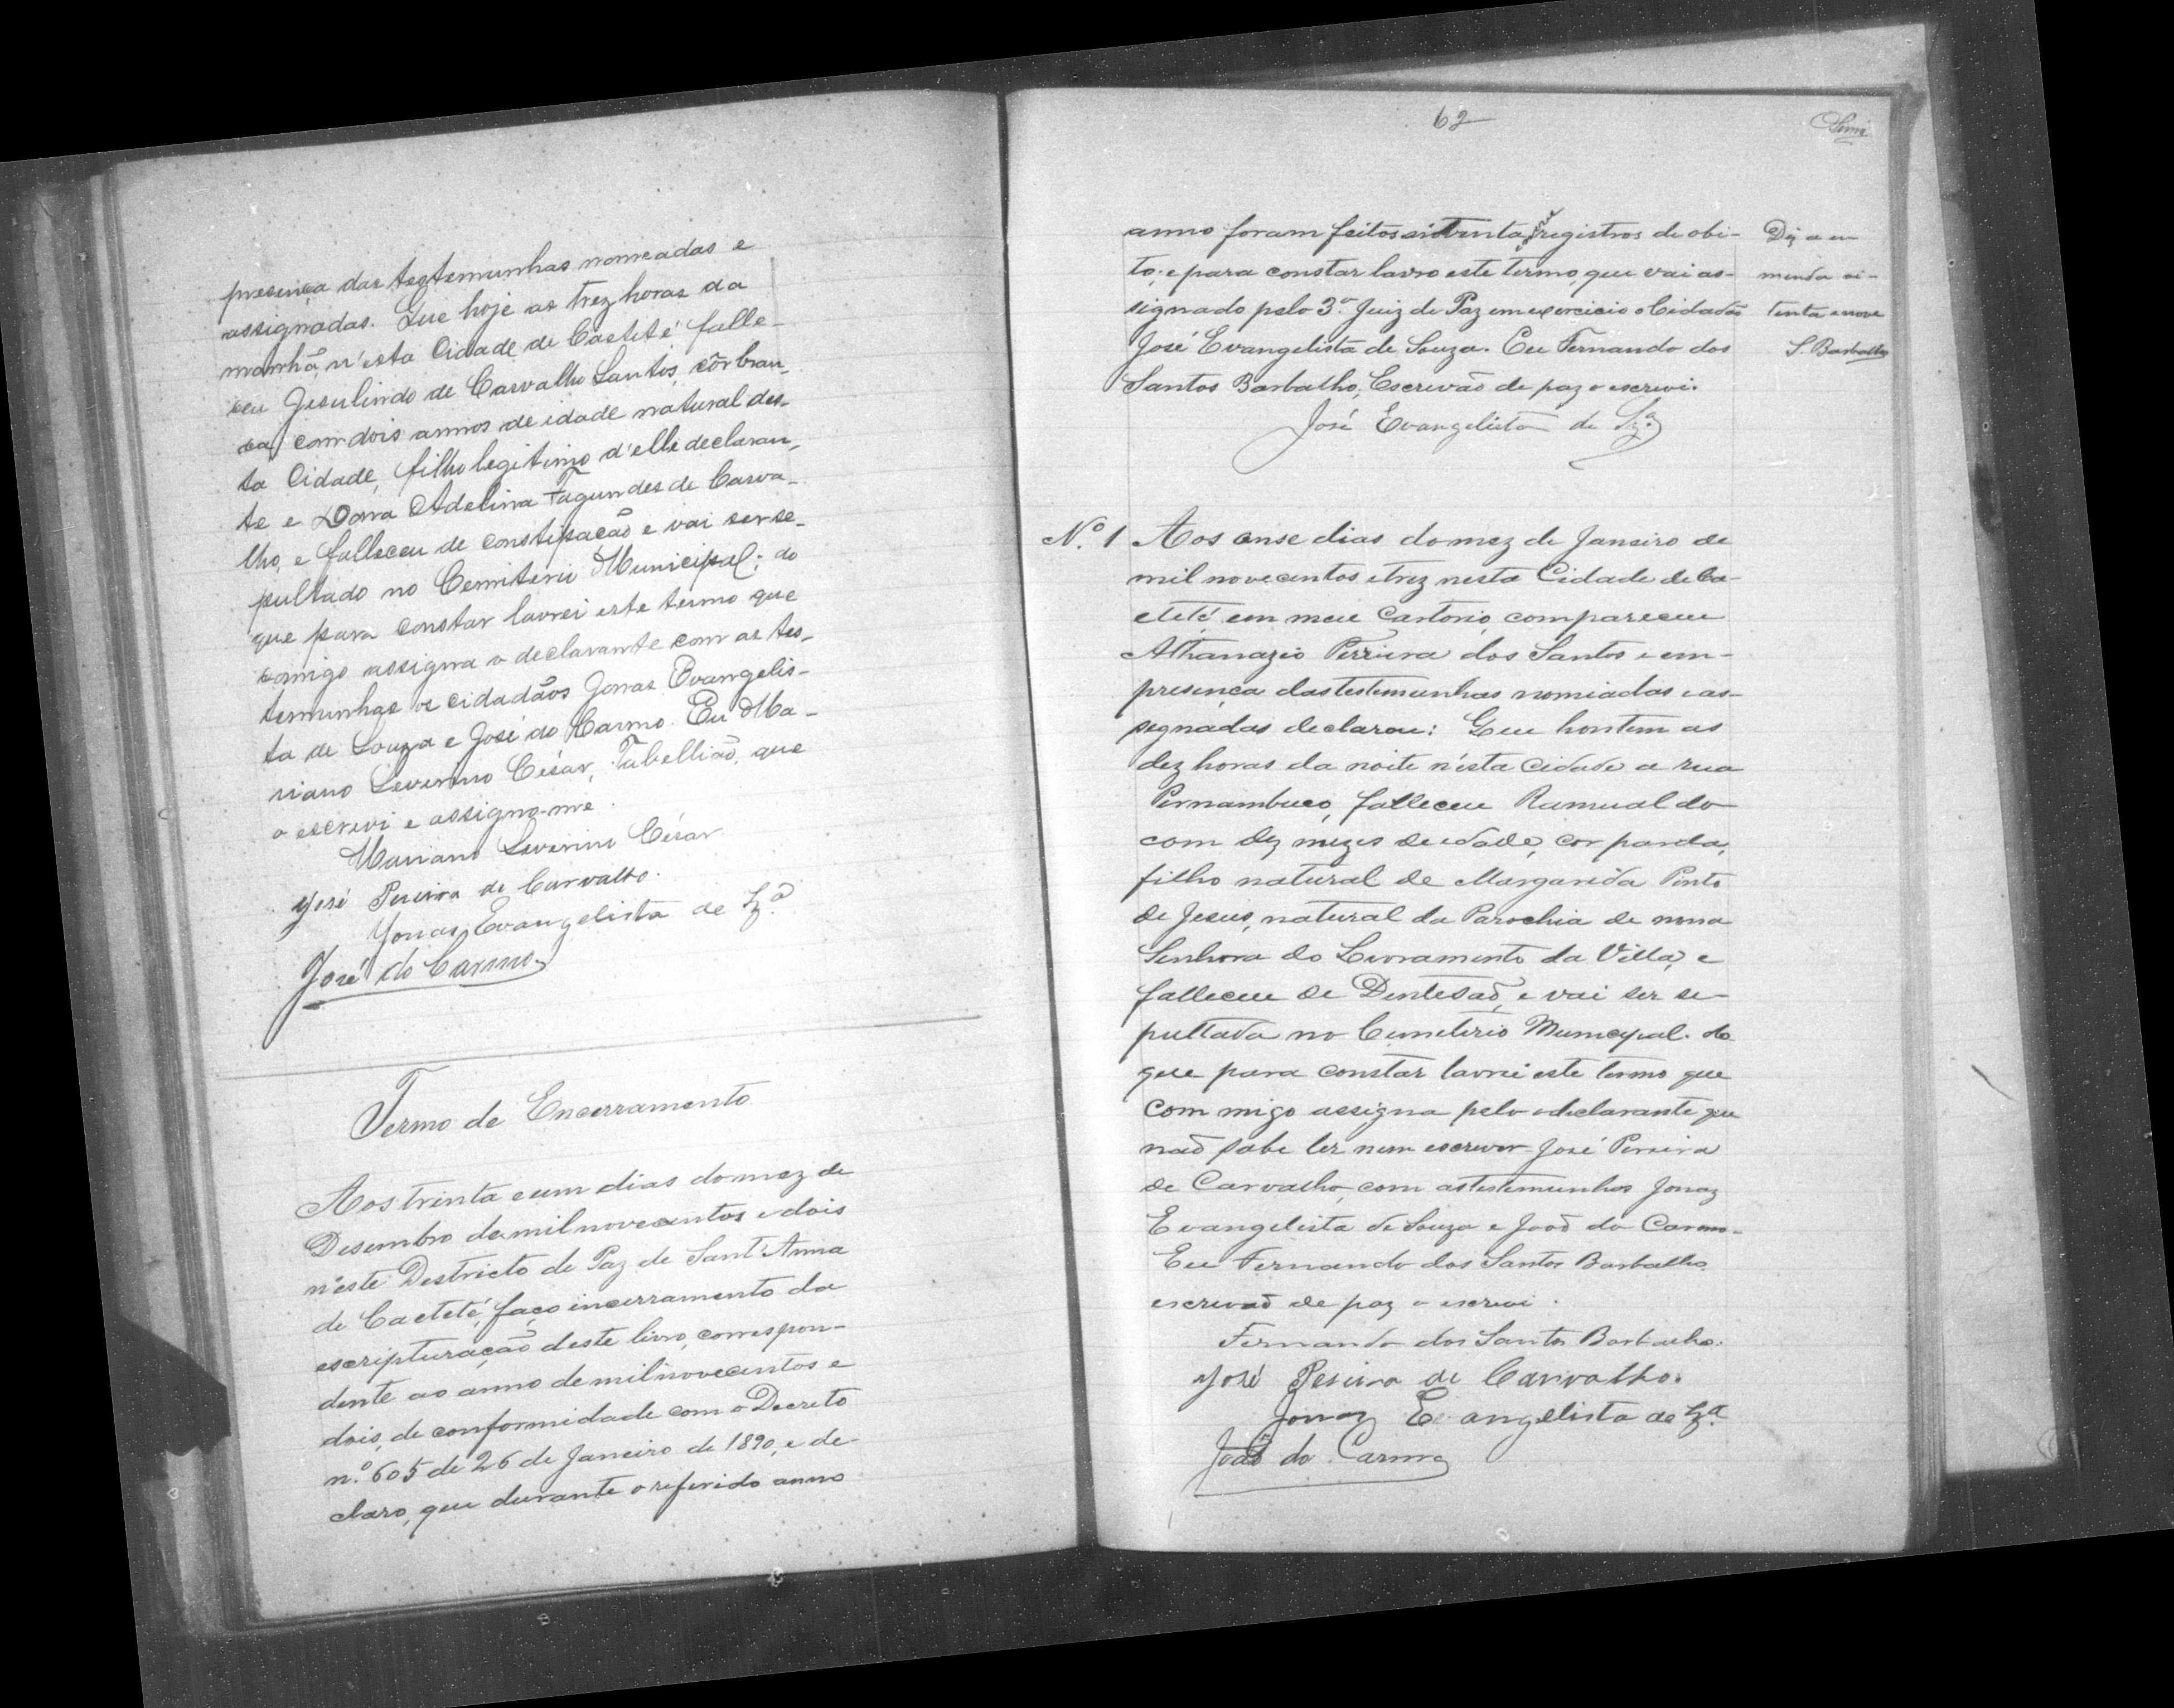 presença das testemunhas nomeadas e
assignadas. Que hoje as trez horas da
manhã, n'esta Cidade de Caetité falle-
ceu Jesulindo de Carvalho Santos, côr bran-
ca, com dois annos de idade natural des-
ta Cidade, filho legitimo d'elle declaran-
te e Dona Adelina Fagundes de Carva-
lho, e falleceu de constipação e vai ser se-
pultado no Cemiterio Municipal; do
que para constar lavrei este termo que
comigo assigna o declarante com as tes-
temunhas os cidadãos Jonas Evangelis-
ta de Souza e José do Carmo. Eu Ma-
riano Severino César, Tabellião, que
o escrevi e assigno-me.
Mariano Severino César
José Pereira de Carvalho.
Jonas Evangelista de Sza
José do Carmo
Termo de Encerramento
Aos trinta e um dias do mez de
Desembro de mil novecentos e dois
n'este Destricto de Paz de Sant'Anna
de Caeteté, faço incerramento da
escripturação deste livro, correspon-
dente ao anno de mil novecentos e
dois, de conformidade com o Decreto
n.º 605 de 26 de Janeiro de 1890, e de-
claro, que durante o referido anno
62
anno foram feitos registros de obi-
to; e para constar lavro este termo, que vai as-
signado pelo 3º Juiz de Paz em exercicio o Cidadão
José Evangelista de Souza. Eu Fernando dos
Santos Barbalho, Escrivão de paz o escrevi.
José Evangelista de Sza
Diz a e-
menda oi-
tenta e nove
S. Barbalho
N.º 1 Aos onse dias do mez de Janeiro de
mil novecentos e trez nesta Cidade de Ca-
eteté, em meu Cartorio, compareceu
Athanazio Ferreira dos Santos e em-
presença das testemunhas nomiadas e as-
segnadas declarou: Que hontem as
dez horas da noite n'esta Cidade a rua
Pernambuco, falleceu Ramualdo
com dez mezes de edade, cor parda,
filho natural de Margarida Pinto
de Jesus, natural da Parochia de nossa
Senhora do Livramento da Villa, e
falleceu de Dentesaõ, e vai ser se-
pultada no Cemeterio Municipal. do
que para constar lavrei este termo que
com migo assigna pelo o declarante que
naõ sabe ler nem escrever José Pereira
de Carvalho, com as testemunhas Jonaz
Evangelista de Souza e Joaõ do Carmo.
Eu Fernando dos Santos Barbalho
escrivaõ de paz o escrevi.
Fernando dos Santos Barbalho.
José Pereira de Carvalho.
Jonaz Evangelista de Sza
Joaõ do Carmo